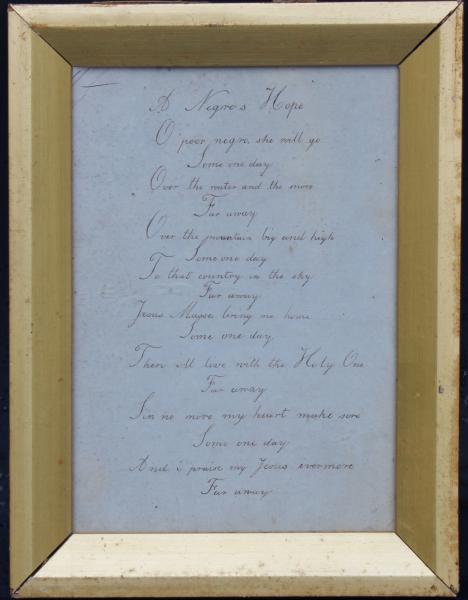 A Negro's Hope
O' poor negro, she will go
Some one day
Over the water and the
Far away
Over the mountain big and high
Some one day
To that country in the sky
Far away
Jesus Massa bring me home
Some one day
Then Ill live with the Holy One
Far away
Sin no more my heart make sore
Some one day
And i praise my Jesus evermore
Far away